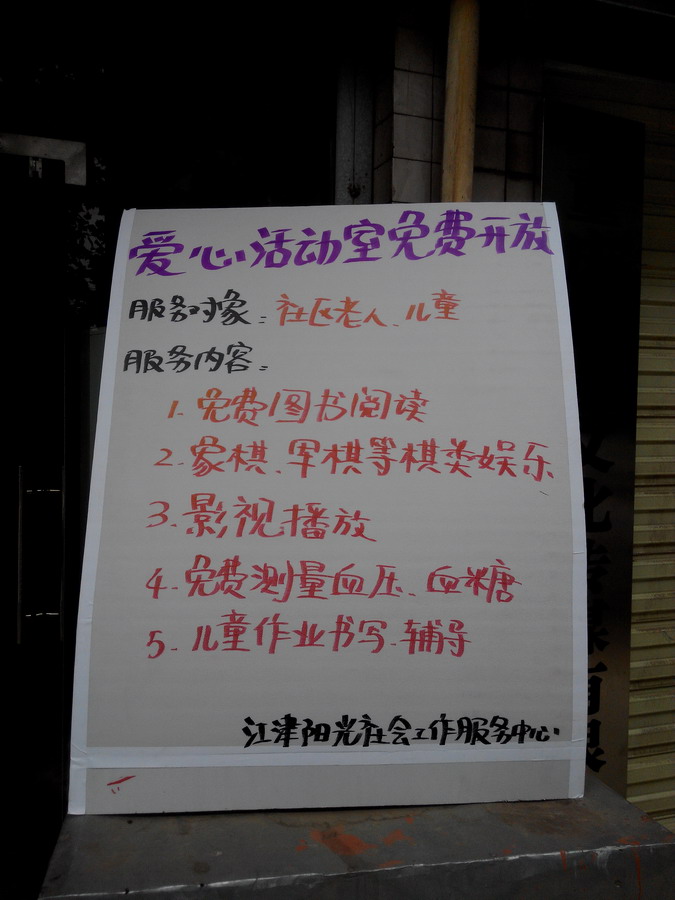 爱心活动室免费开放
服务对象：社区老人、儿童
服务内容：
1.免费图书阅读
2.象棋、军棋等棋类娱乐
3.影视播放
4.免费测量血压、血糖
5.儿童作业书写、辅导
江津阳光社会工作服务中心